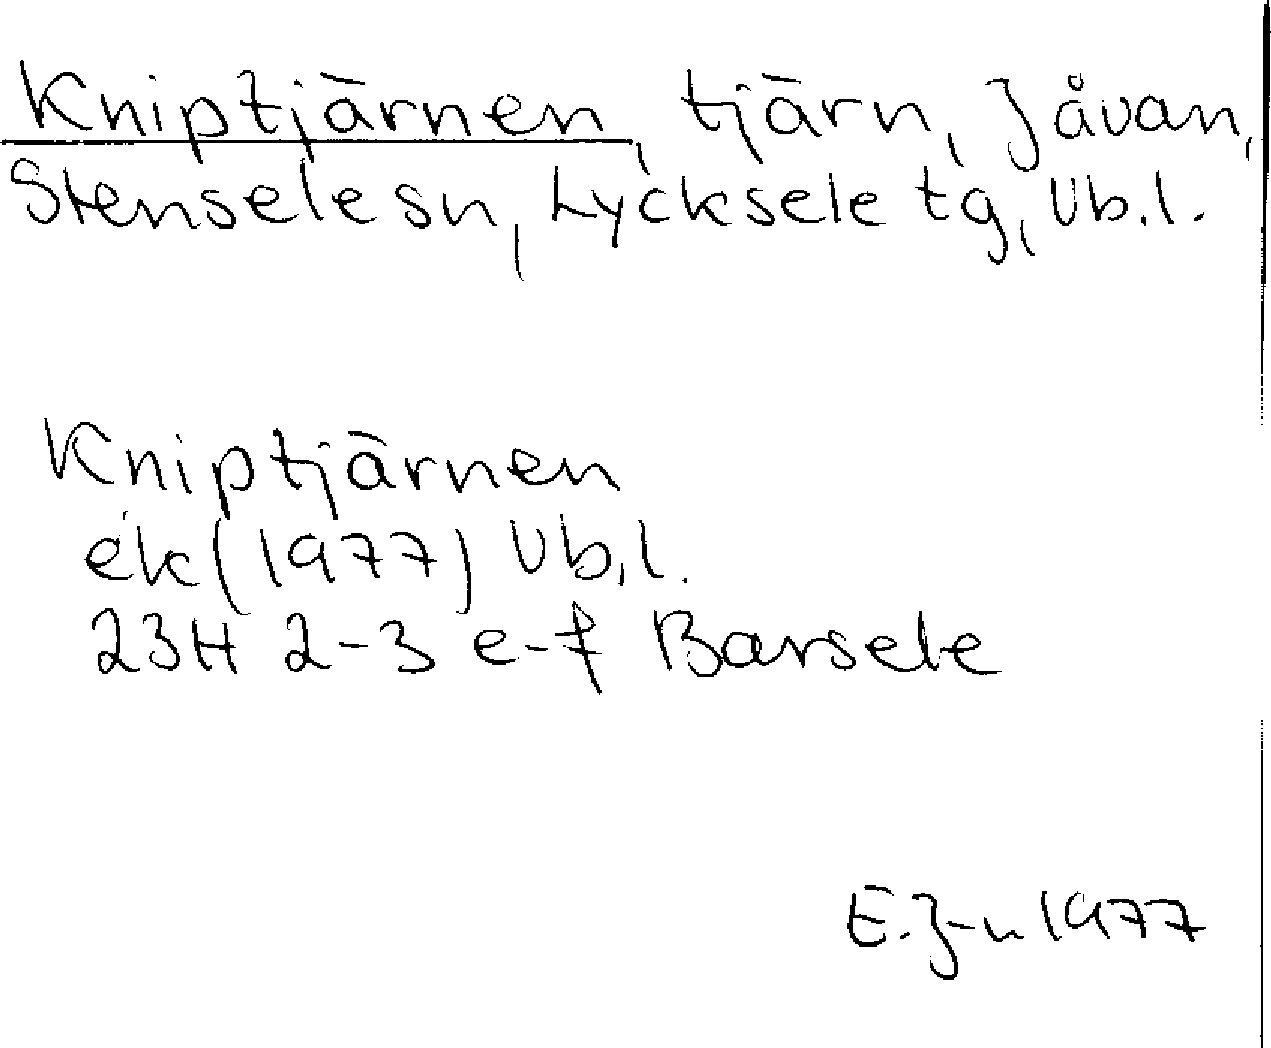 Kniptjärnen, tjärn, Jåvan,
Stensele sn, Lycksele tg, Vb.l.
Kniptjärnen
ek (1977) Vb.l.
23H 2-3 e-f Barsele
E.J-n 1977